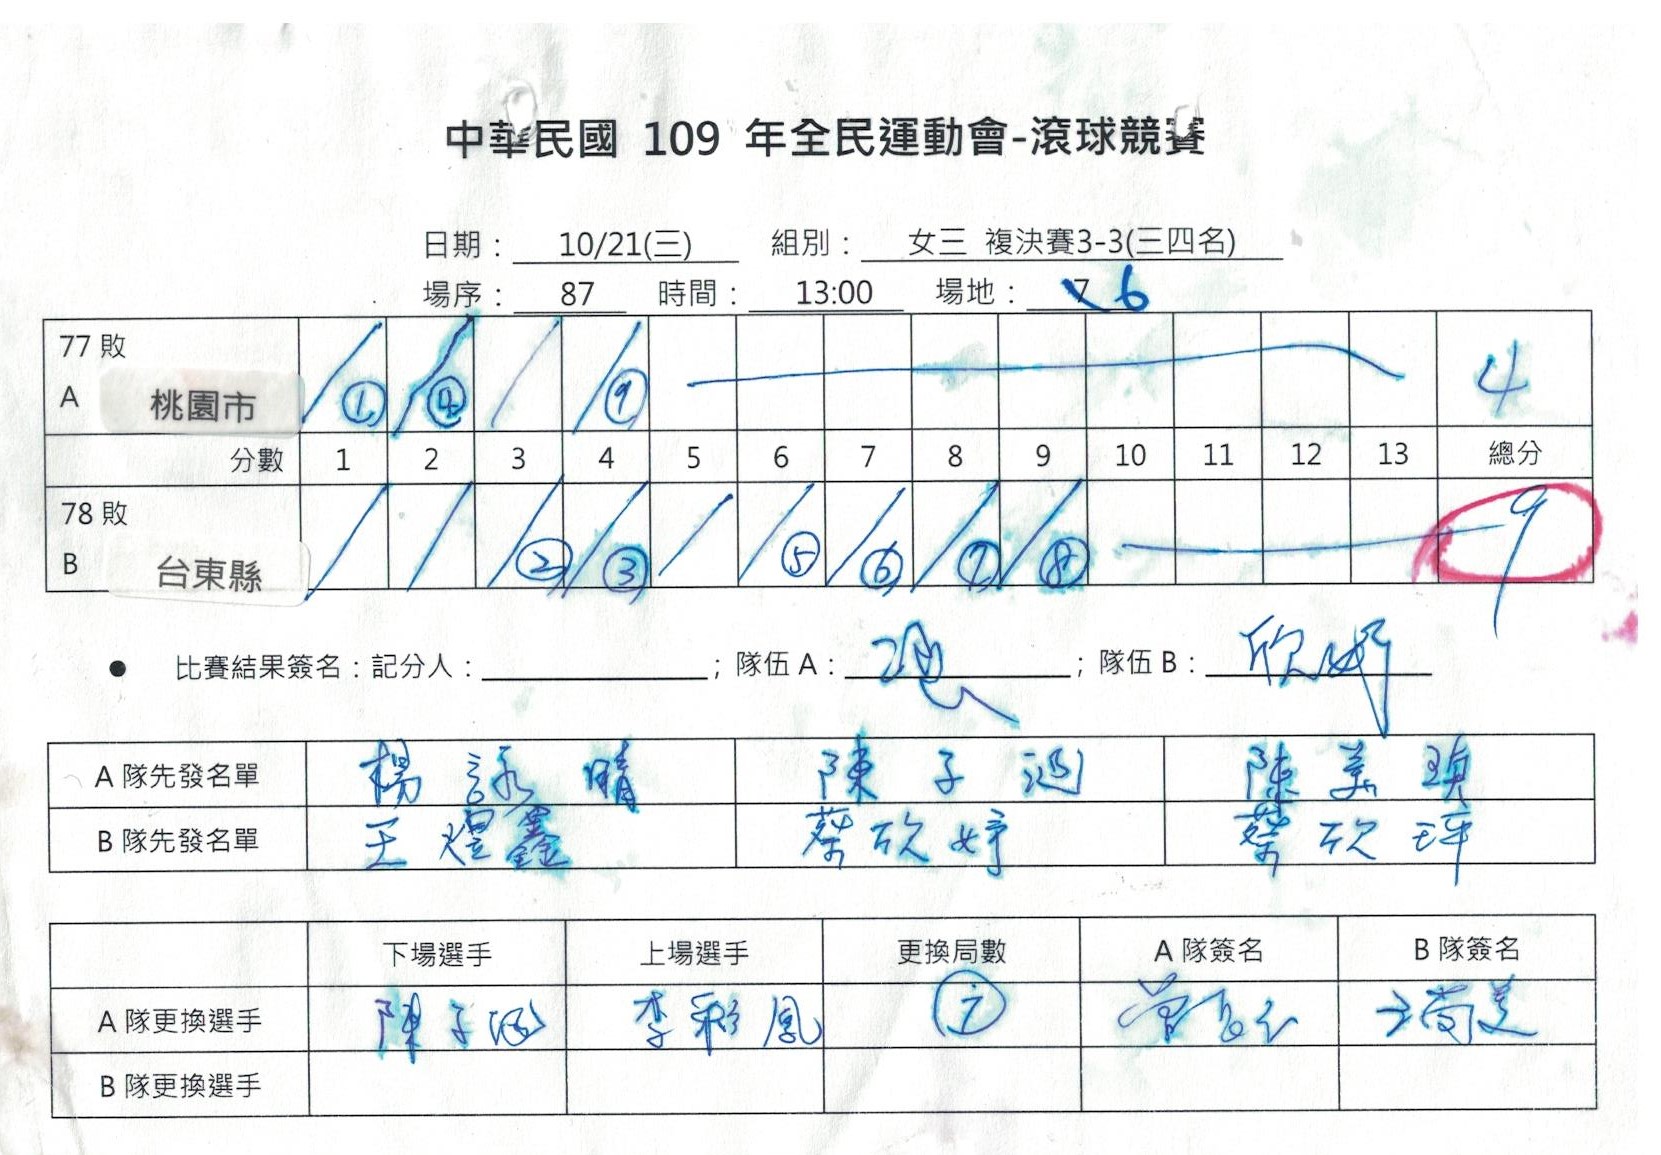 中華民國 109 年全民運動會-滾球競賽
日期： 10/21(三) 組別： 女三 複決賽3-3(三四名)
場序： 87 時間： 13:00 場地： 7 6
77 敗
A 桃園市 ① ② ⑨ 4
分數 1 2 3 4 5 6 7 8 9 10 11 12 13 總分
78 敗
B 台東縣 ② ③ ⑤ ⑥ ⑦ ⑧ 9
● 比賽結果簽名：記分人： ；隊伍 A： ；隊伍 B： 欣婷
A 隊先發名單 楊詠晴 陳子涵 陳美
B 隊先發名單 王煌鑫 蔡欣婷 蔡欣玶
下場選手 上場選手 更換局數 A 隊簽名 B 隊簽名
A 隊更換選手 陳子涵 李彩鳳 ⑦
B 隊更換選手